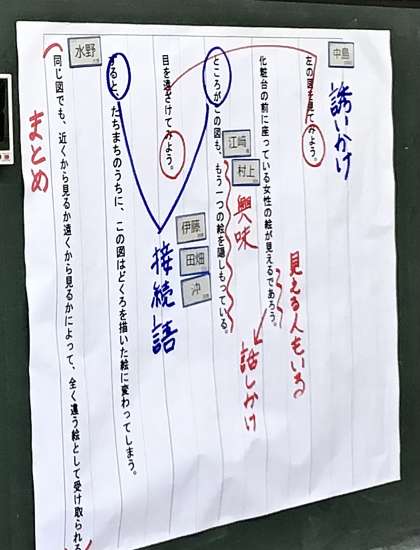 中島
誘いかけ
左の図を見てみよう。
見える人もいる
化粧台の前に座っている女性の絵が見えるであろう。
話しかけ
江﨑
村上
興味
ところがこの図も、もう一つの絵を隠しもっている。
伊藤
田畑
沖
目を遠ざけてみよう。
接続語
すると、たちまちのうちに、この図はどくろを描いた絵に変わってしまう。
水野
同じ図でも、近くから見るか遠くから見るかによって、全く違う絵として受け取られる
まとめ